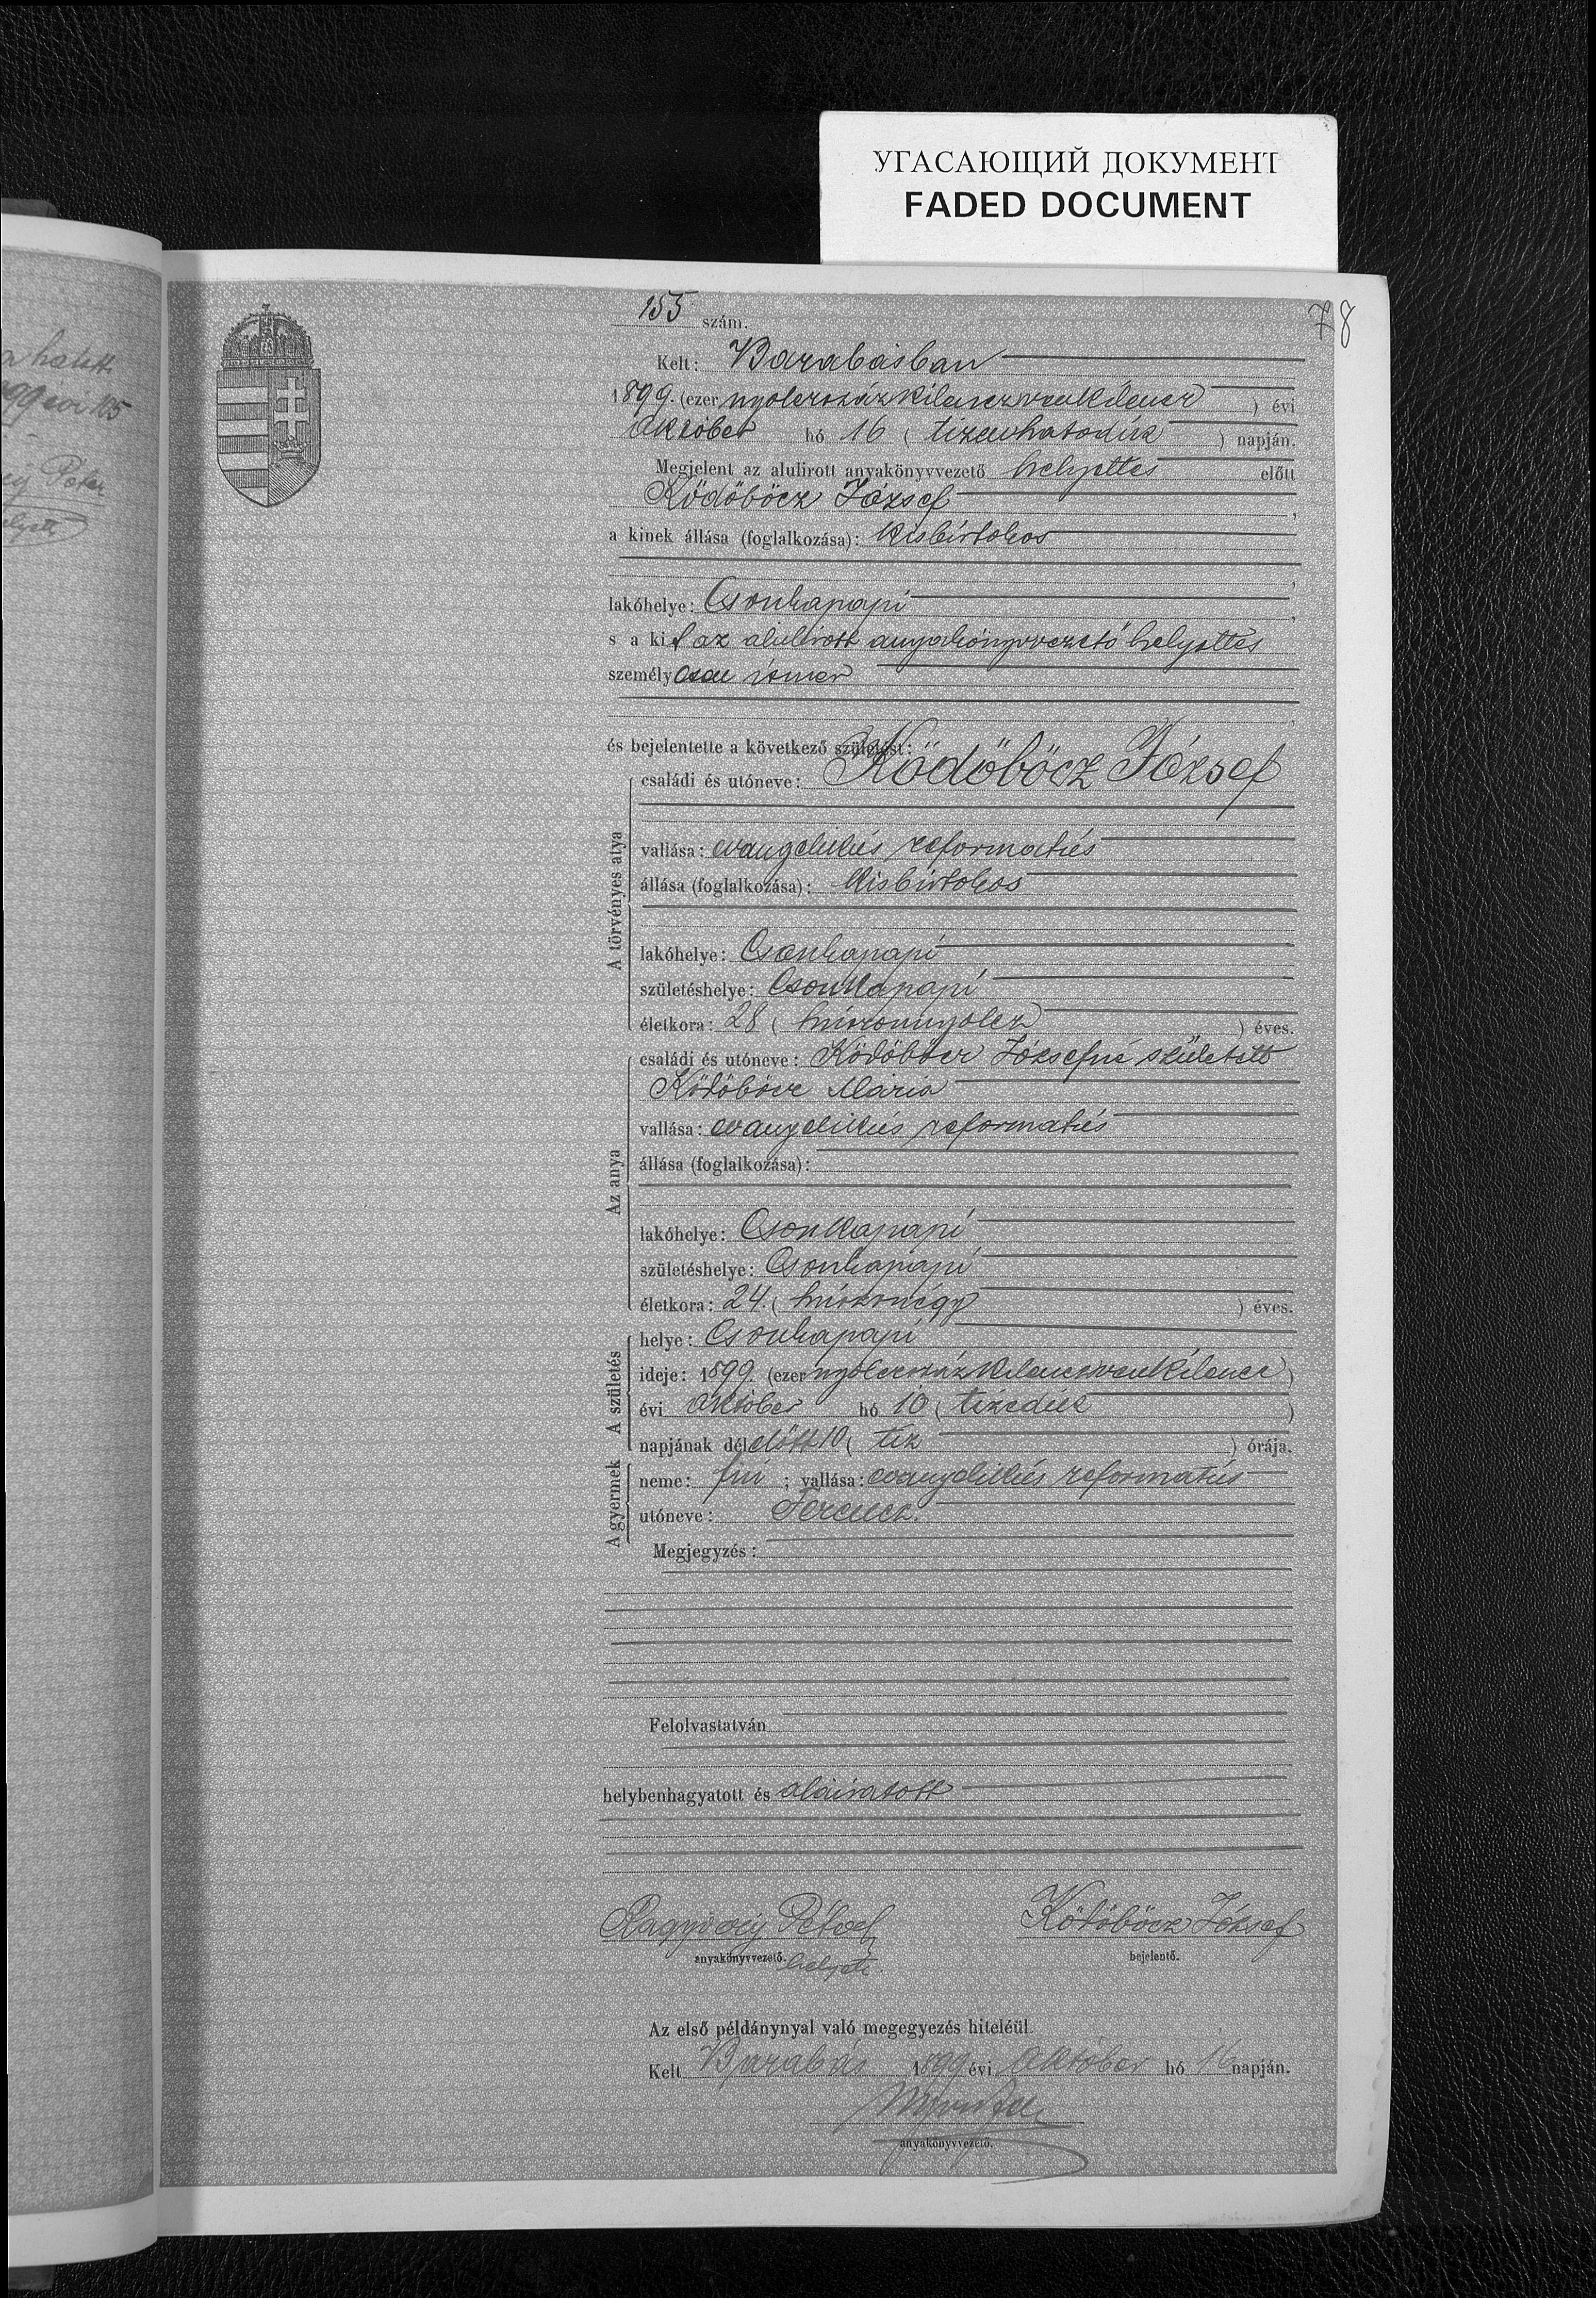 УГАСАЮЩИЙ ДОКУМЕНТ
FADED DOCUMENT
78
155 szám.
Kelt: Barabásban
1899. (ezer nyolczszázkilenczvenkilencz) évi
október hó 16 (tizenhatodik) napján.
Megjelent az alulirott anyakönyvvezető helyettes előtt
Ködöböcz József,
a kinek állása (foglalkozása): kisbirtokos
,
lakóhelye: Csonkapapi,
s a kit az alulirott anyakönyvvezető helyettes
személyesen ismer
,
és bejelentette a következő születést:
A törvényes atya
családi és utóneve: Ködöböcz József
vallása: evangelikus reformatus
állása (foglalkozása): kisbirtokos
lakóhelye: Csonkapapi
születéshelye: Csonkapapi
életkora: 28 (huszonnyolcz) éves.
Az anya
családi és utóneve: Ködöböcz Józsefné született
Ködöböcz Mária
vallása: evangelikus reformatus
állása (foglalkozása):
lakóhelye: Csonkapapi
születéshelye: Csonkapapi
életkora: 24. (huszonégy) éves.
A születés
helye: Csonkapapi
ideje: 1899. (ezer nyolczszázkilenczvenkilencz)
évi október hó 10 (tizedik)
napjának délelőtt 10 (tiz) órája.
A gyermek
neme: fiú; vallása: evangelikus reformatus
utóneve: Ferencz.
Megjegyzés:
Felolvastatván
helybenhagyatott és aláiratott
Péter Ködöböcz József
anyakönyvvezető. helyett. bejelentő.
Az első példánynyal való megegyezés hiteléül.
Kelt Barabás 1899 évi október hó 16 napján.
anyakönyvvezető.